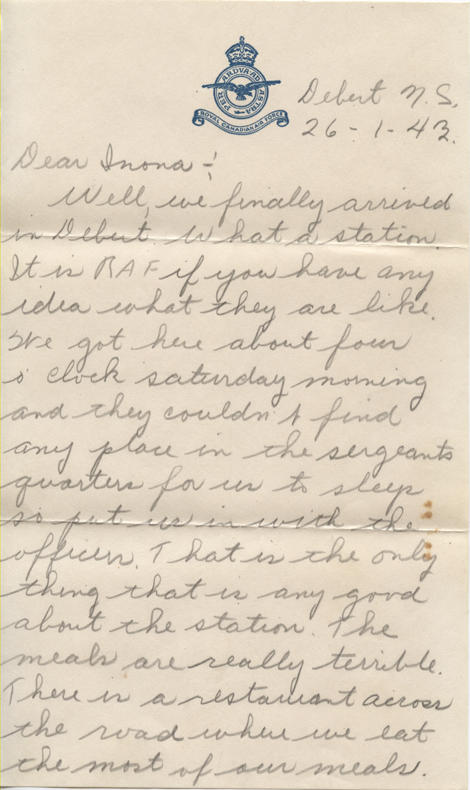 PER ARDVA AD ASTRA
ROYAL CANADIAN AIR FORCE
Debert N.S.
26-1-43.
Dear Inona -:
Well, we finally arrived
in Debert. What a station.
It is RAF if you have any
idea what they are like.
We got here about four
o'clock saturday morning
and they couldn't find
any place in the sergeants
quarters for us to sleep
so put us in with the
officers. That is the only
thing that is any good
about the station. The
meals are really terrible.
There is a restaurant across
the road where we eat
the most of our meals.